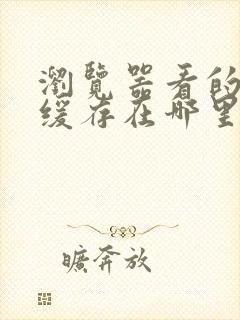 瀏覽器看的
缓存在哪里
曠奔放